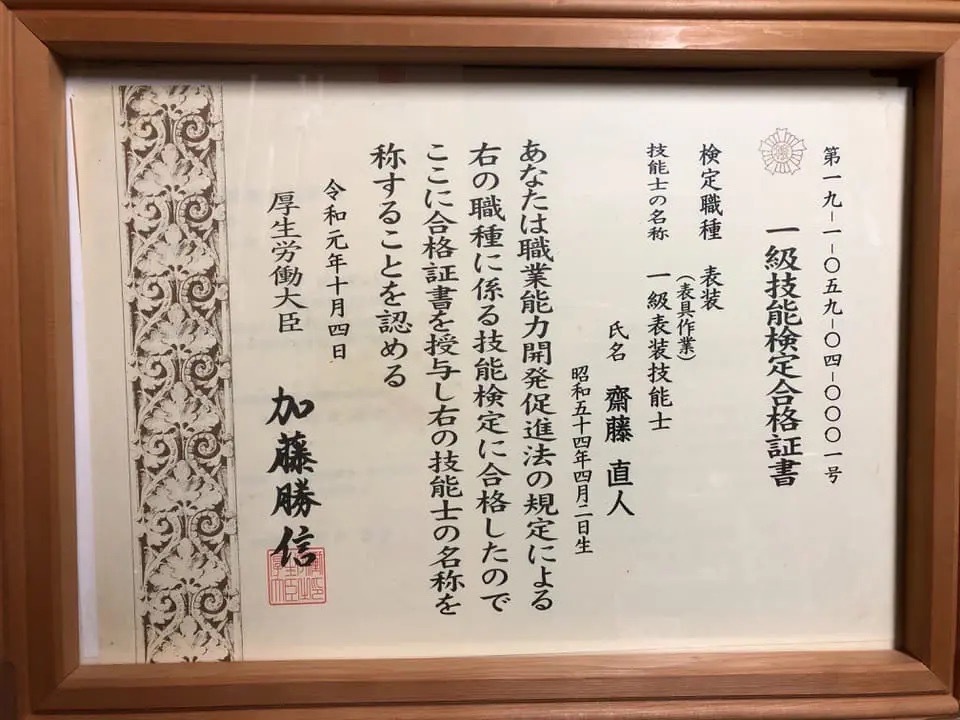 第一九-一-〇五九-〇四-〇〇〇一号
一級技能検定合格証書
検定職種 表装
(表具作業)
技能士の名称 一級表装技能士
氏名 齋藤 直人
昭和五十四年四月二日生
あなたは職業能力開発促進法の規定による
右の職種に係る技能検定に合格したので
ここに合格証書を授与し右の技能士の名称を
称することを認める
令和元年十月四日
厚生労働大臣 加藤勝信